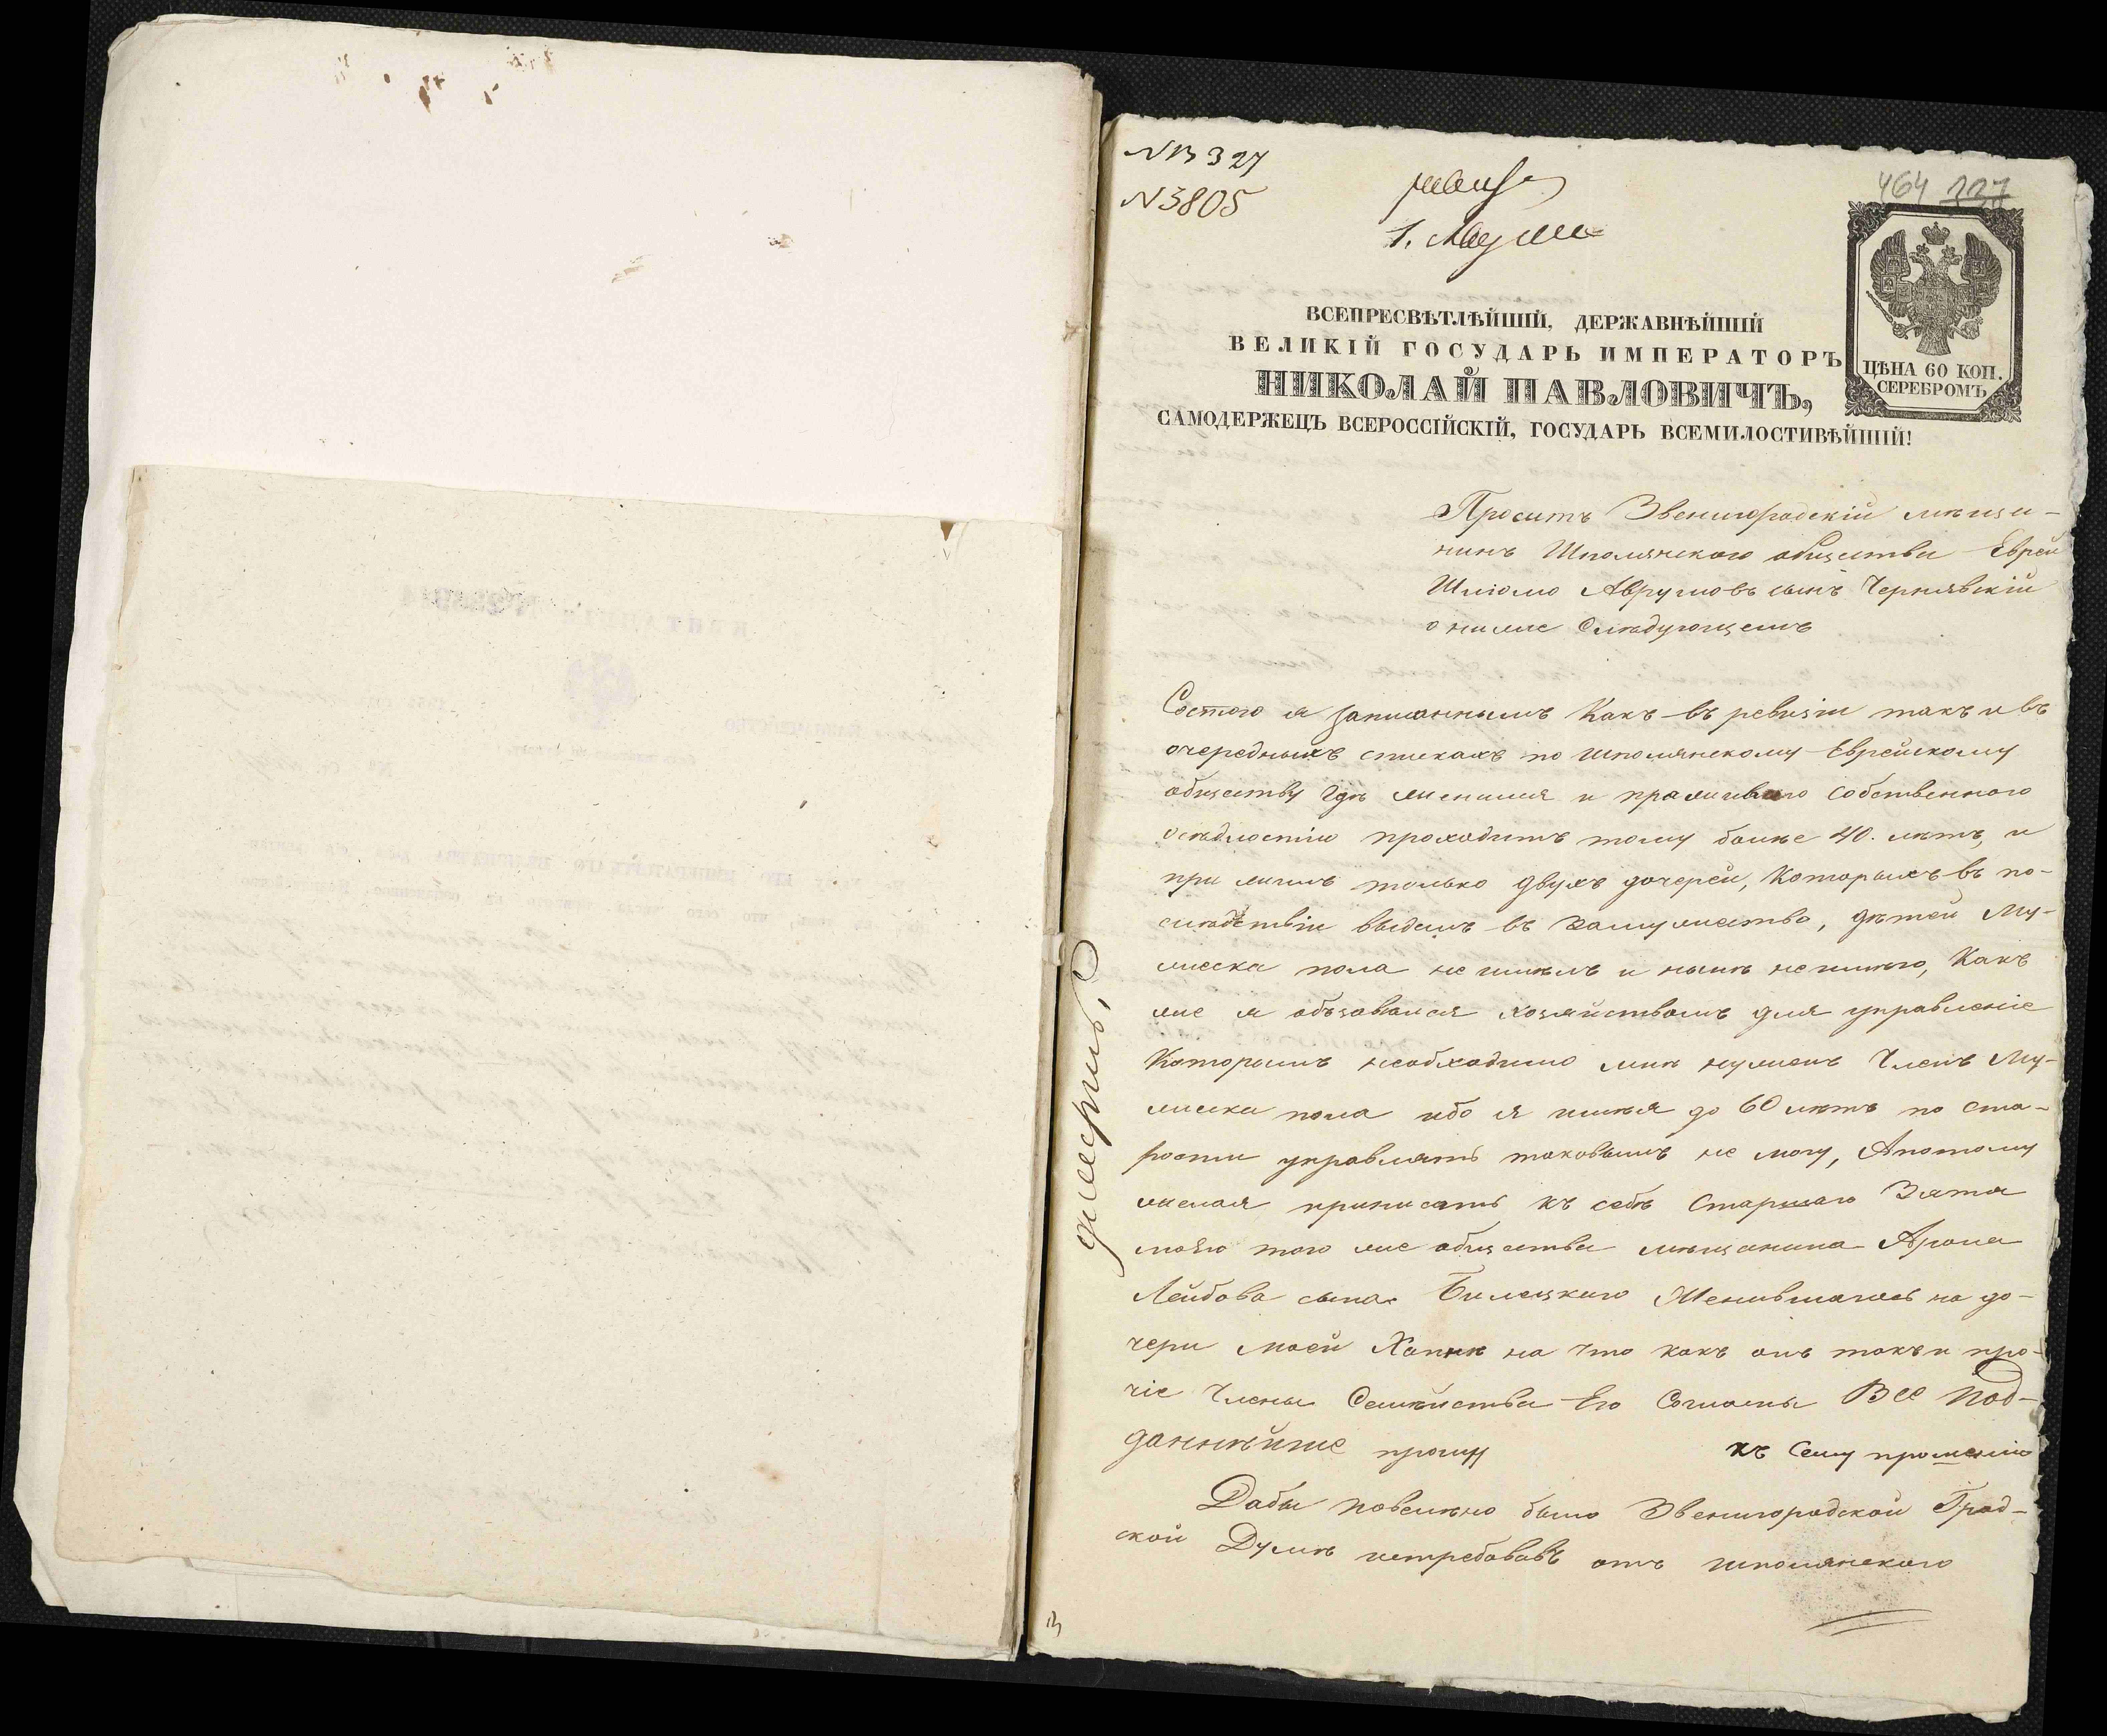 № 327
N 3805
464 227
ЦѢНА 60 КОП.
СЕРЕБРОМЪ
ВСЕПРЕСВѢТЛѢЙШІЙ, ДЕРЖАВНѢЙШІЙ
ВЕЛИКІЙ ГОСУДАРЬ ИМПЕРАТОРЪ
НИКОЛАЙ ПАВЛОВИЧЪ,
САМОДЕРЖЕЦЪ ВСЕРОССІЙСКІЙ, ГОСУДАРЬ ВСЕМИЛОСТИВѢЙШІЙ!
Проситъ Звенигородскій мѣща-
нинъ Шполянского общества Еврей
Шліомо Аврумовъ сынъ Чернявскій
о ниже слѣдующемъ
Состою я записаннымъ Какъ въ ревизіи такъ и въ
очередныхъ спискахъ по шполянскому Еврейскому
обществу гдѣ женился и проживаю собственного
осѣдлостію проходитъ тому болѣе 40. лѣтъ, и
при жилъ только двухъ дочерей, Которыхъ въ по-
слѣдствіи выдалъ въ замужество, дѣтей Му-
жеска пола не имѣлъ и нынѣ неимѣю, Какъ
же я обзавелся хозяйствомъ для управленіе
Которымъ необходимо мнѣ нуженъ Членъ Му-
жеска пола ибо я имѣя до 60 лѣтъ по ста-
рости управлять таковымъ не могу, Апотому
желая приписать къ себѣ Старшаго Зятя
моего того же общества мѣщанина Арона
Лейбова сына Билецкаго Женившагось на до-
чери моей Ханнѣ на что какъ онъ такъ и про-
чіе Члены Семѣйства Его Согласны Все Под-
даннѣйше прошу къ Сему прошенію
Дабы повелѣно было Звенигородской Град-
ской Думѣ истребовавъ отъ шполянского